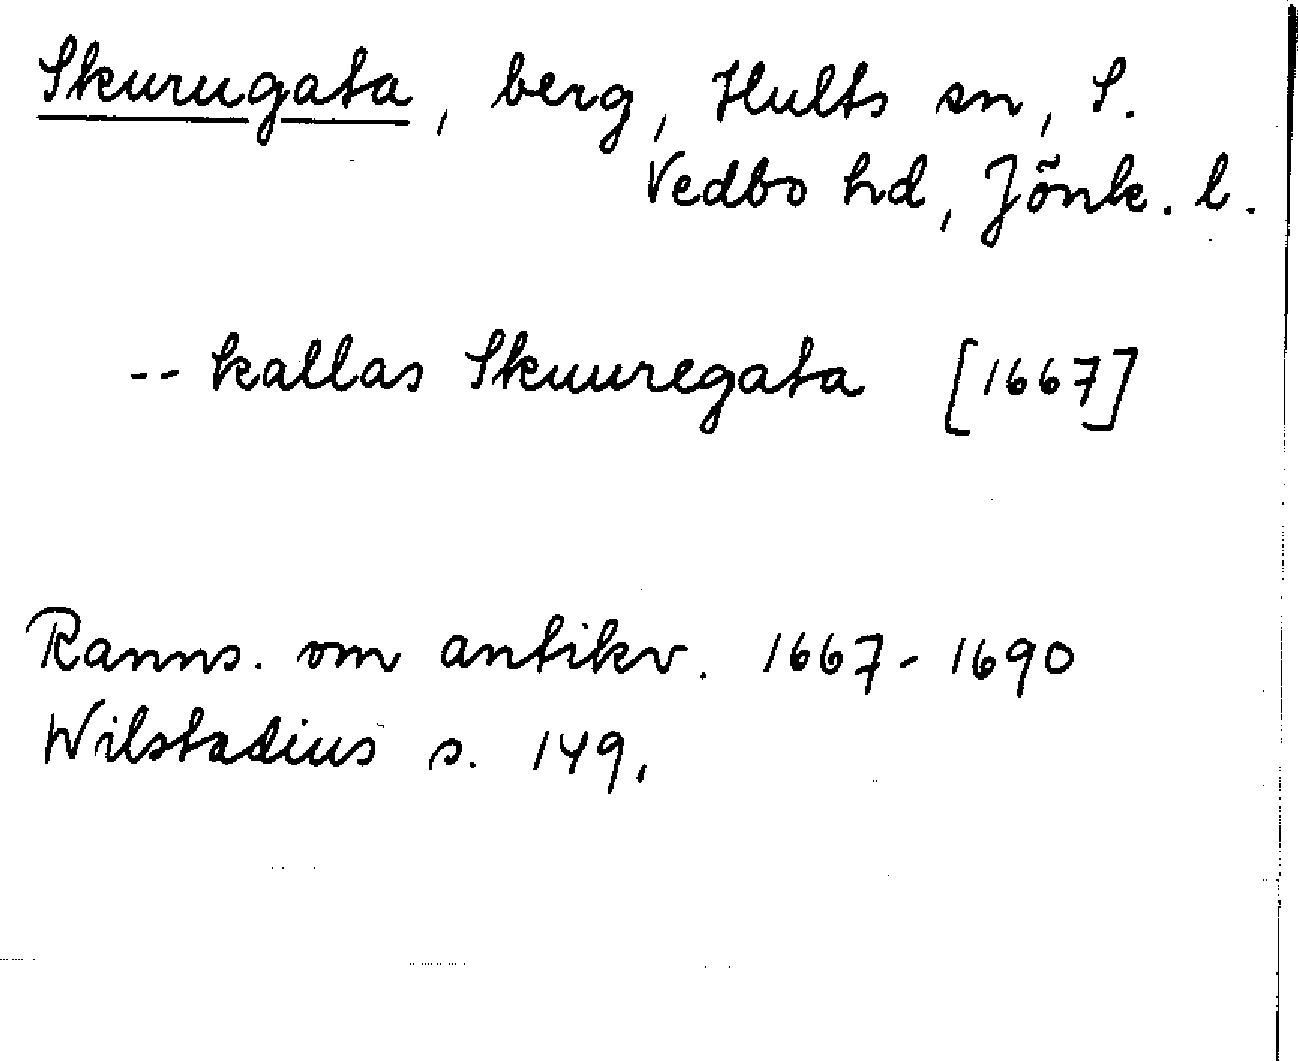 Skurugata, berg, Hults sn, S.
Vedbo hd, Jönk. l.
-- kallas Skuuregata [1667]
Ranns. om antikv. 1667-1690
Wilstadius s. 149.